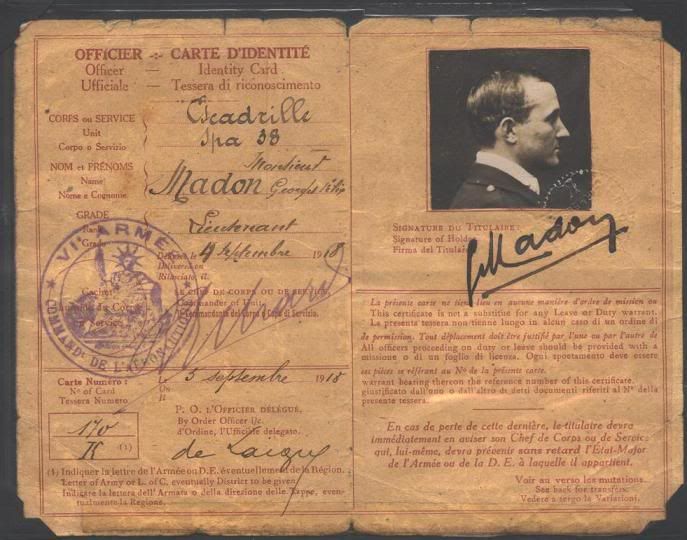 OFFICIER -:- CARTE D'IDENTITÉ
Officer — Identity Card
Ufficiale — Tessera di riconoscimento
CORPS ou SERVICE
Unit
Corpo o Servizio
Escadrille
Spa 38
NOM et PRÉNOMS
Name
Nome e Cognome
Monsieur
Madon Georges Félix
GRADE
Rank
Grado
Lieutenant
Délivrée le
Delivered on
Rilasciato, il
4 Septembre 1918
Cachet
LE CHEF DE CORPS OU DE SERVICE
Commander of Unit
Il Commandante del Corpo o Capo di Servizio.
VIe ARMÉE
COMMANDt DE L'AÉRONAUTIQUE
Carte Numéro :
No of Card
Tessera Numero
Le
On
Il
5 septembre 1918
P. O. L'OFFICIER DÉLÉGUÉ,
By Order Officer i/c.
d'Ordine, l'Ufficiale delegato.
170
(1)
(1) Indiquer la lettre de l'Armée ou D.E. éventuellement de la Région.
Letter of Army or L. of C. eventually District to be given.
Indicare la lettera dell'Armata o della direzione delle Tappe, even-
tualmente la Regione.
SIGNATURE DU TITULAIRE :
Signature of Holder
Firma del Titulaire
GMadon
La présente carte ne tient lieu en aucune manière d'ordre de mission ou
This certificate is not a substitute for any Leave or Duty warrant.
La presente tessera non tienne luogo in alcun caso di un ordine di
de permission. Tout déplacement doit être justifié par l'une ou par l'autre de
All officers proceeding on duty or leave should be provided with a
missione o di un foglio di licenza. Ogni spostamento deve essere
ces pièces se référant au No de la présente carte.
warrant bearing thereon the reference number of this certificate.
giustificato dall'uno o dall'altro di detti documenti riferiti al No della
presente tessera.
En cas de perte de cette dernière, le titulaire devra
immédiatement en aviser son Chef de Corps ou de Service
qui, lui-même, devra prévenir sans retard l'État-Major
de l'Armée ou de la D. E. à laquelle il appartient.
Voir au verso les mutations.
See back for transfers.
Vedere a tergo le Variazioni.